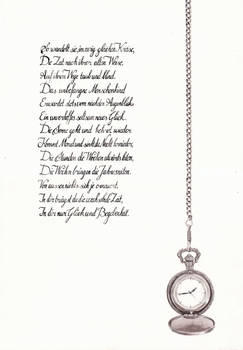 So wandelt sie, im ewig gleichen Kreise,
Die Zeit nach ihrer alten Weise,
Auf ihrem Wege taub und blind.
Das unbefangne Menschenkind
Erwartet stets vom nächsten Augenblick
Ein unverhofftes seltsam neues Glück.
Die Sonne geht und kehret wieder,
Kommet Mond und sinkt die Nacht hernieder,
Die Stunden die Wochen abwärts leiten,
Die Wochen bringen die Jahreszeiten.
Von aussen nichts sich je erneut,
In dir trägst du die wechselnde Zeit,
In dir nur Glück und Begebenheit.